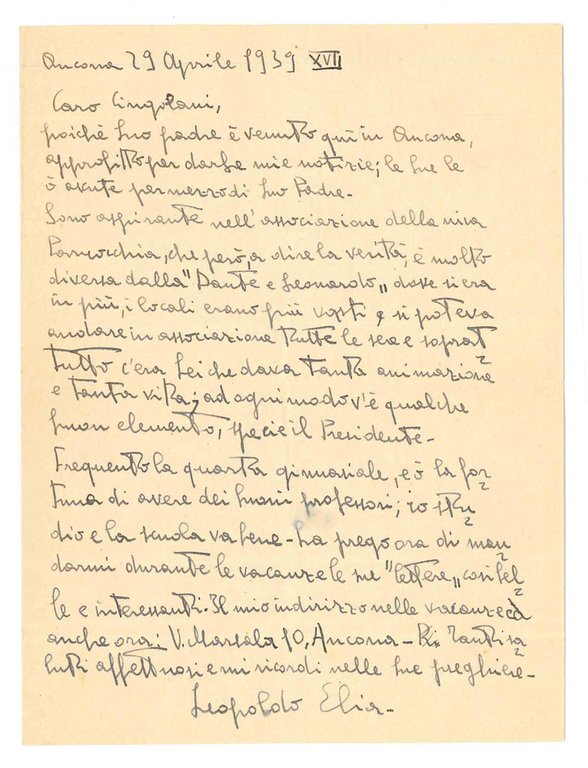 Ancona 29 Aprile 1939 XVII
Caro Cingolani,
poichè Suo padre è venuto quì in Ancona,
approfitto per darLe mie notizie; le Sue le
ò avute per mezzo di Suo Padre-
Sono aspirante nell'associazione della mia
Parrocchia, che però, a dire la verità, è molto
diversa dalla "Dante e Leonardo„ dove si era
in più, i locali erano più vasti e si poteva
andare in associazione tutte le sere e soprat=
tutto c'era Lei che dava tanta animazione
e tanta vita; ad ogni modo v'è qualche
buon elemento, specie il Presidente-
Frequento la quarta ginnasiale, e ò la for=
tuna di avere dei buoni professori; io stu=
dio e la scuola va bene- La prego ora di man=
darmi durante le vacanze le sue "lettere„ così bel=
le e interessanti. Il mio indirizzo nelle vacanze è
anche ora: V. Marsala 10, Ancona- Tanti sa=
luti affettuosi e mi ricordi nelle Sue preghiere-
Leopoldo Elia-